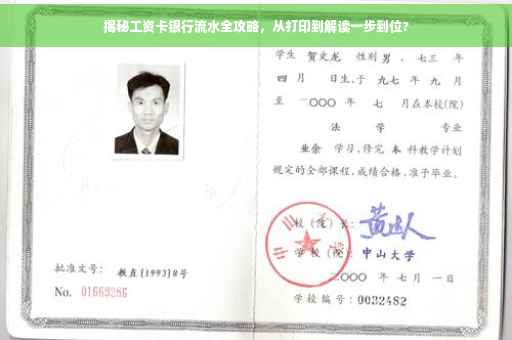 揭秘工资卡银行流水全攻略，从打印到解读一步到位？
学生 贺文龙 性别 男 、七三 年
四 月 日生,于 九七 年 九 月
至 二〇〇〇 年 七 月在本校(院)
法 学 专业
业余 学习,修完 本 科教学计划
规定的全部课程,成绩合格,准予毕业。
校（院）长:
学校（院）: 中山大学
二〇〇〇 年 七 月 一 日
批准文号: 教直[1993]8号
No. 01663286
学校编号: 0032482